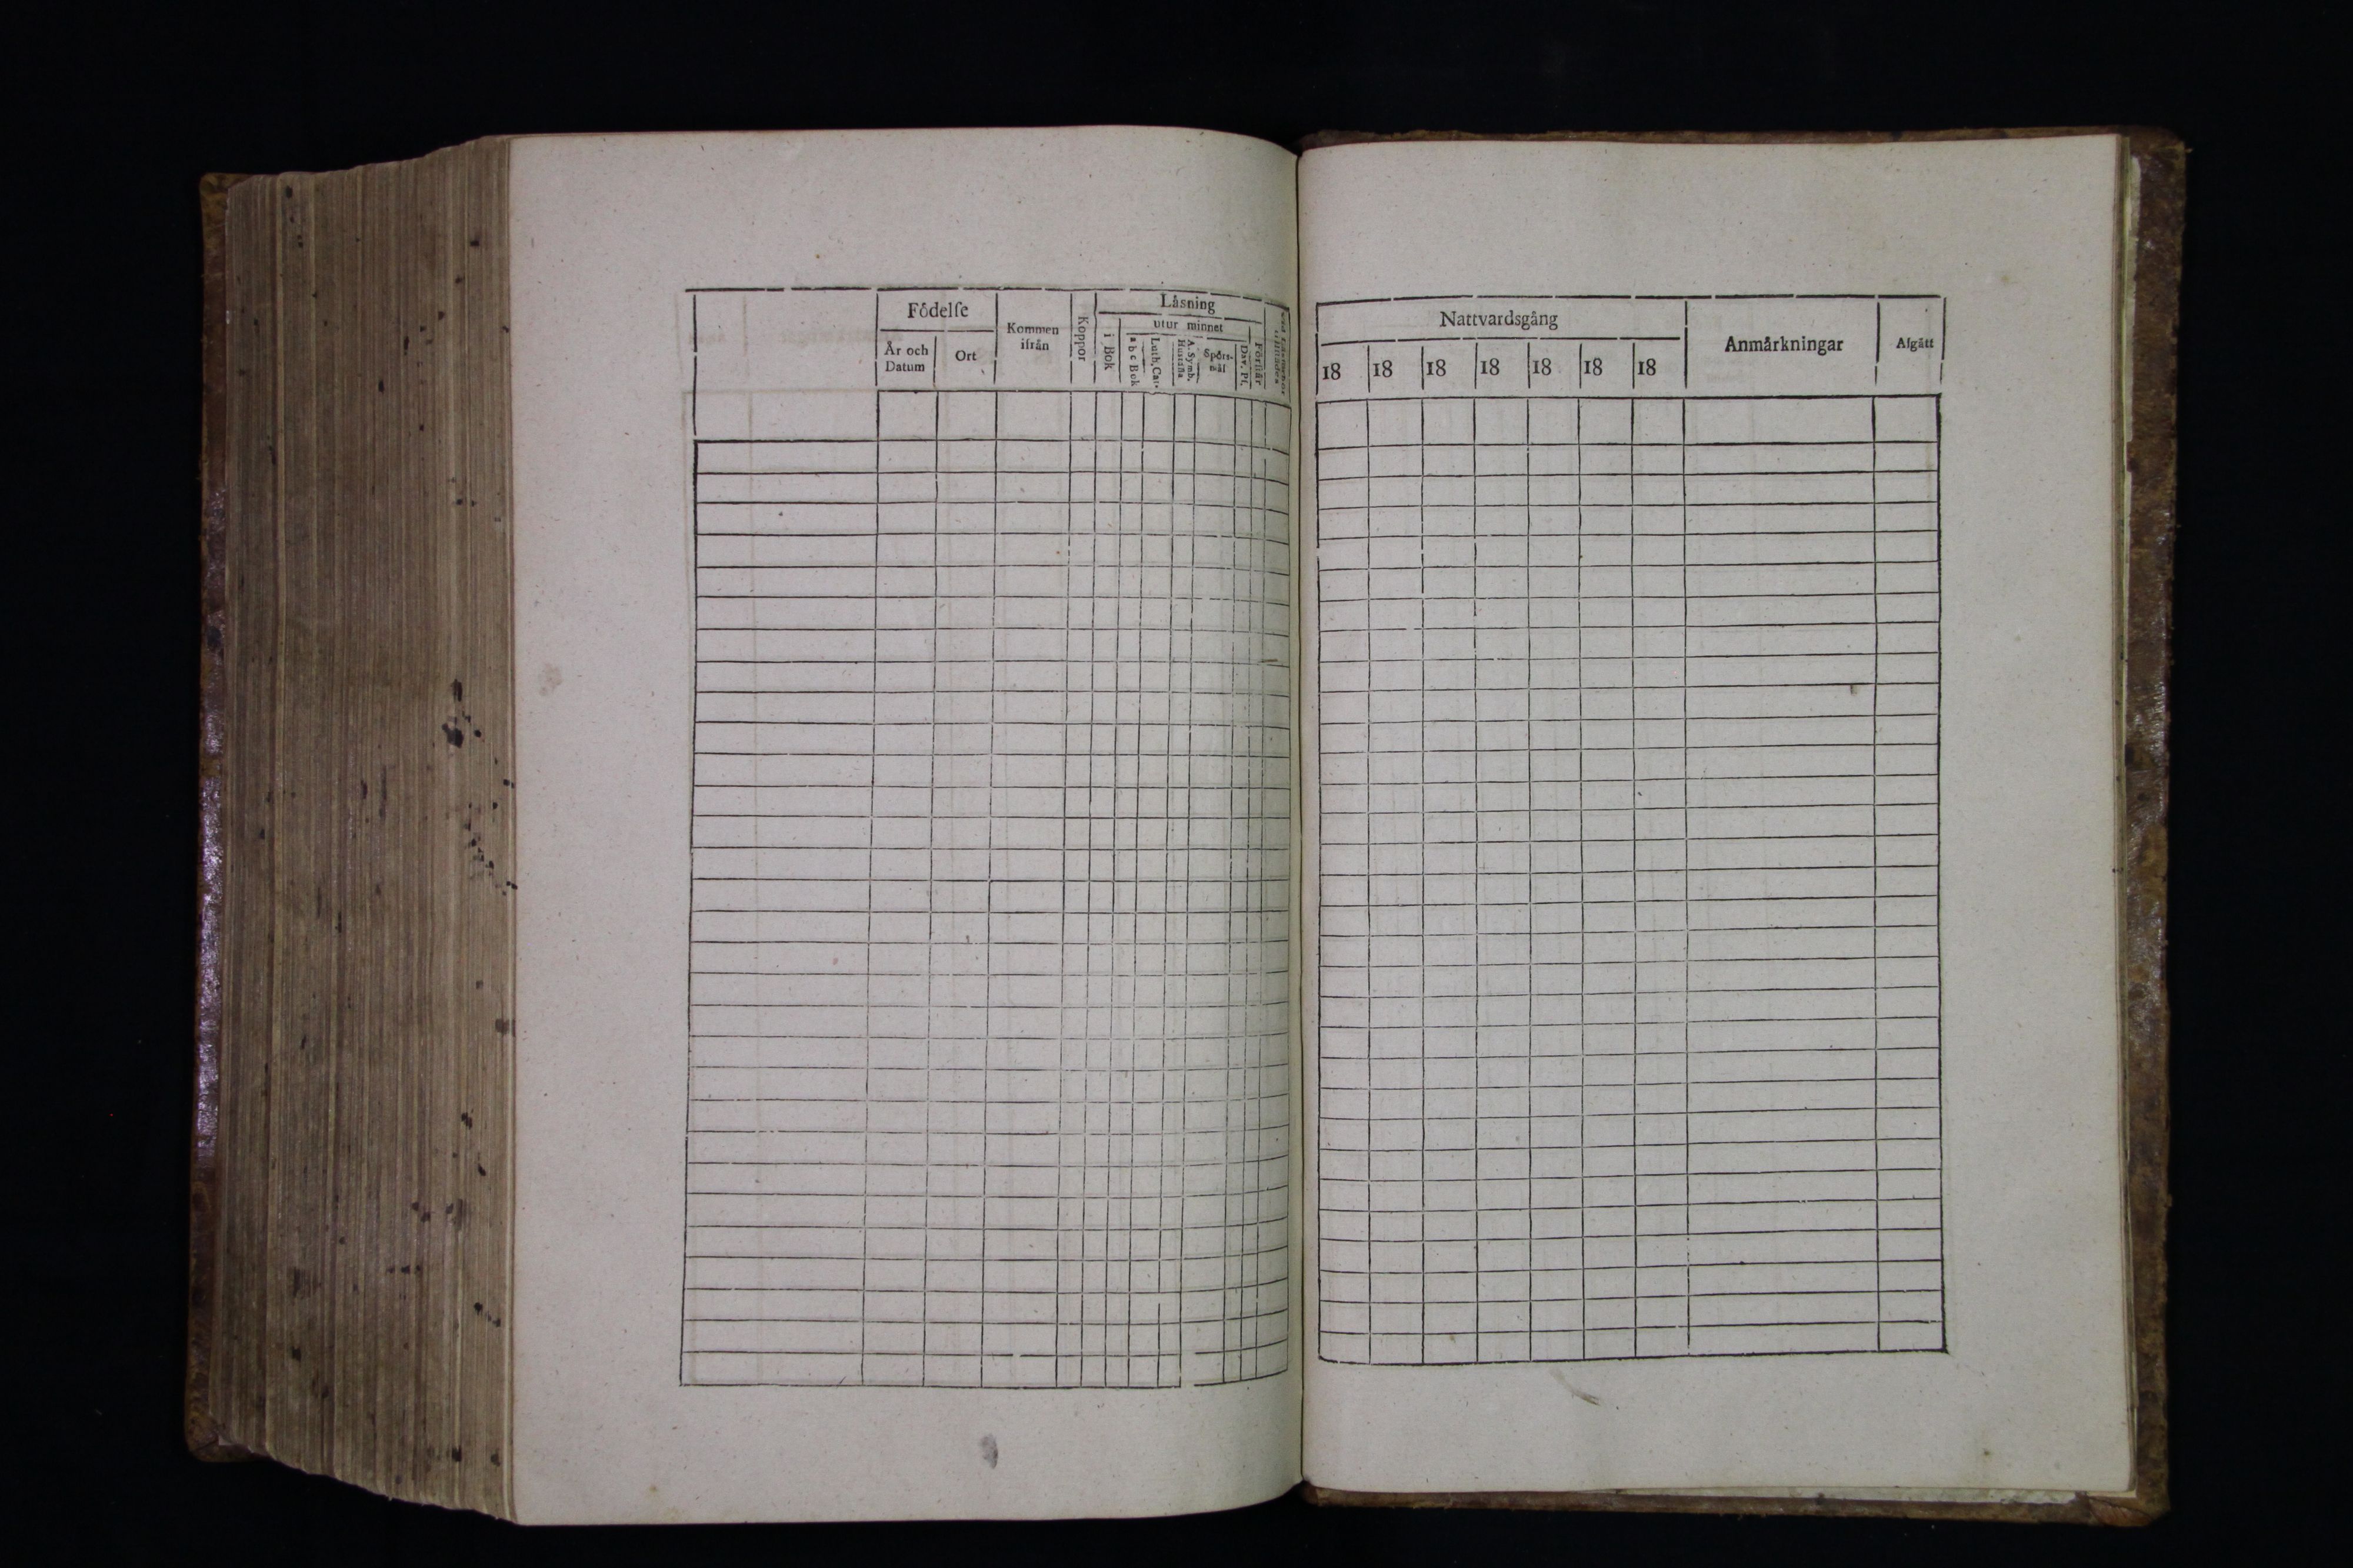 Födelſe
År och
Datum
Ort
Kommen
ifrån
Koppor
Låsning
i Bok
utur minnet
a b c Bok
Luth. Cat.
A. Symb.
Huſtafla
Spörs-
mål
Dav. Pſ.
Förſtår
Nattvardsgång
18 18 18 18 18 18 18
Anmårkningar
Afgått